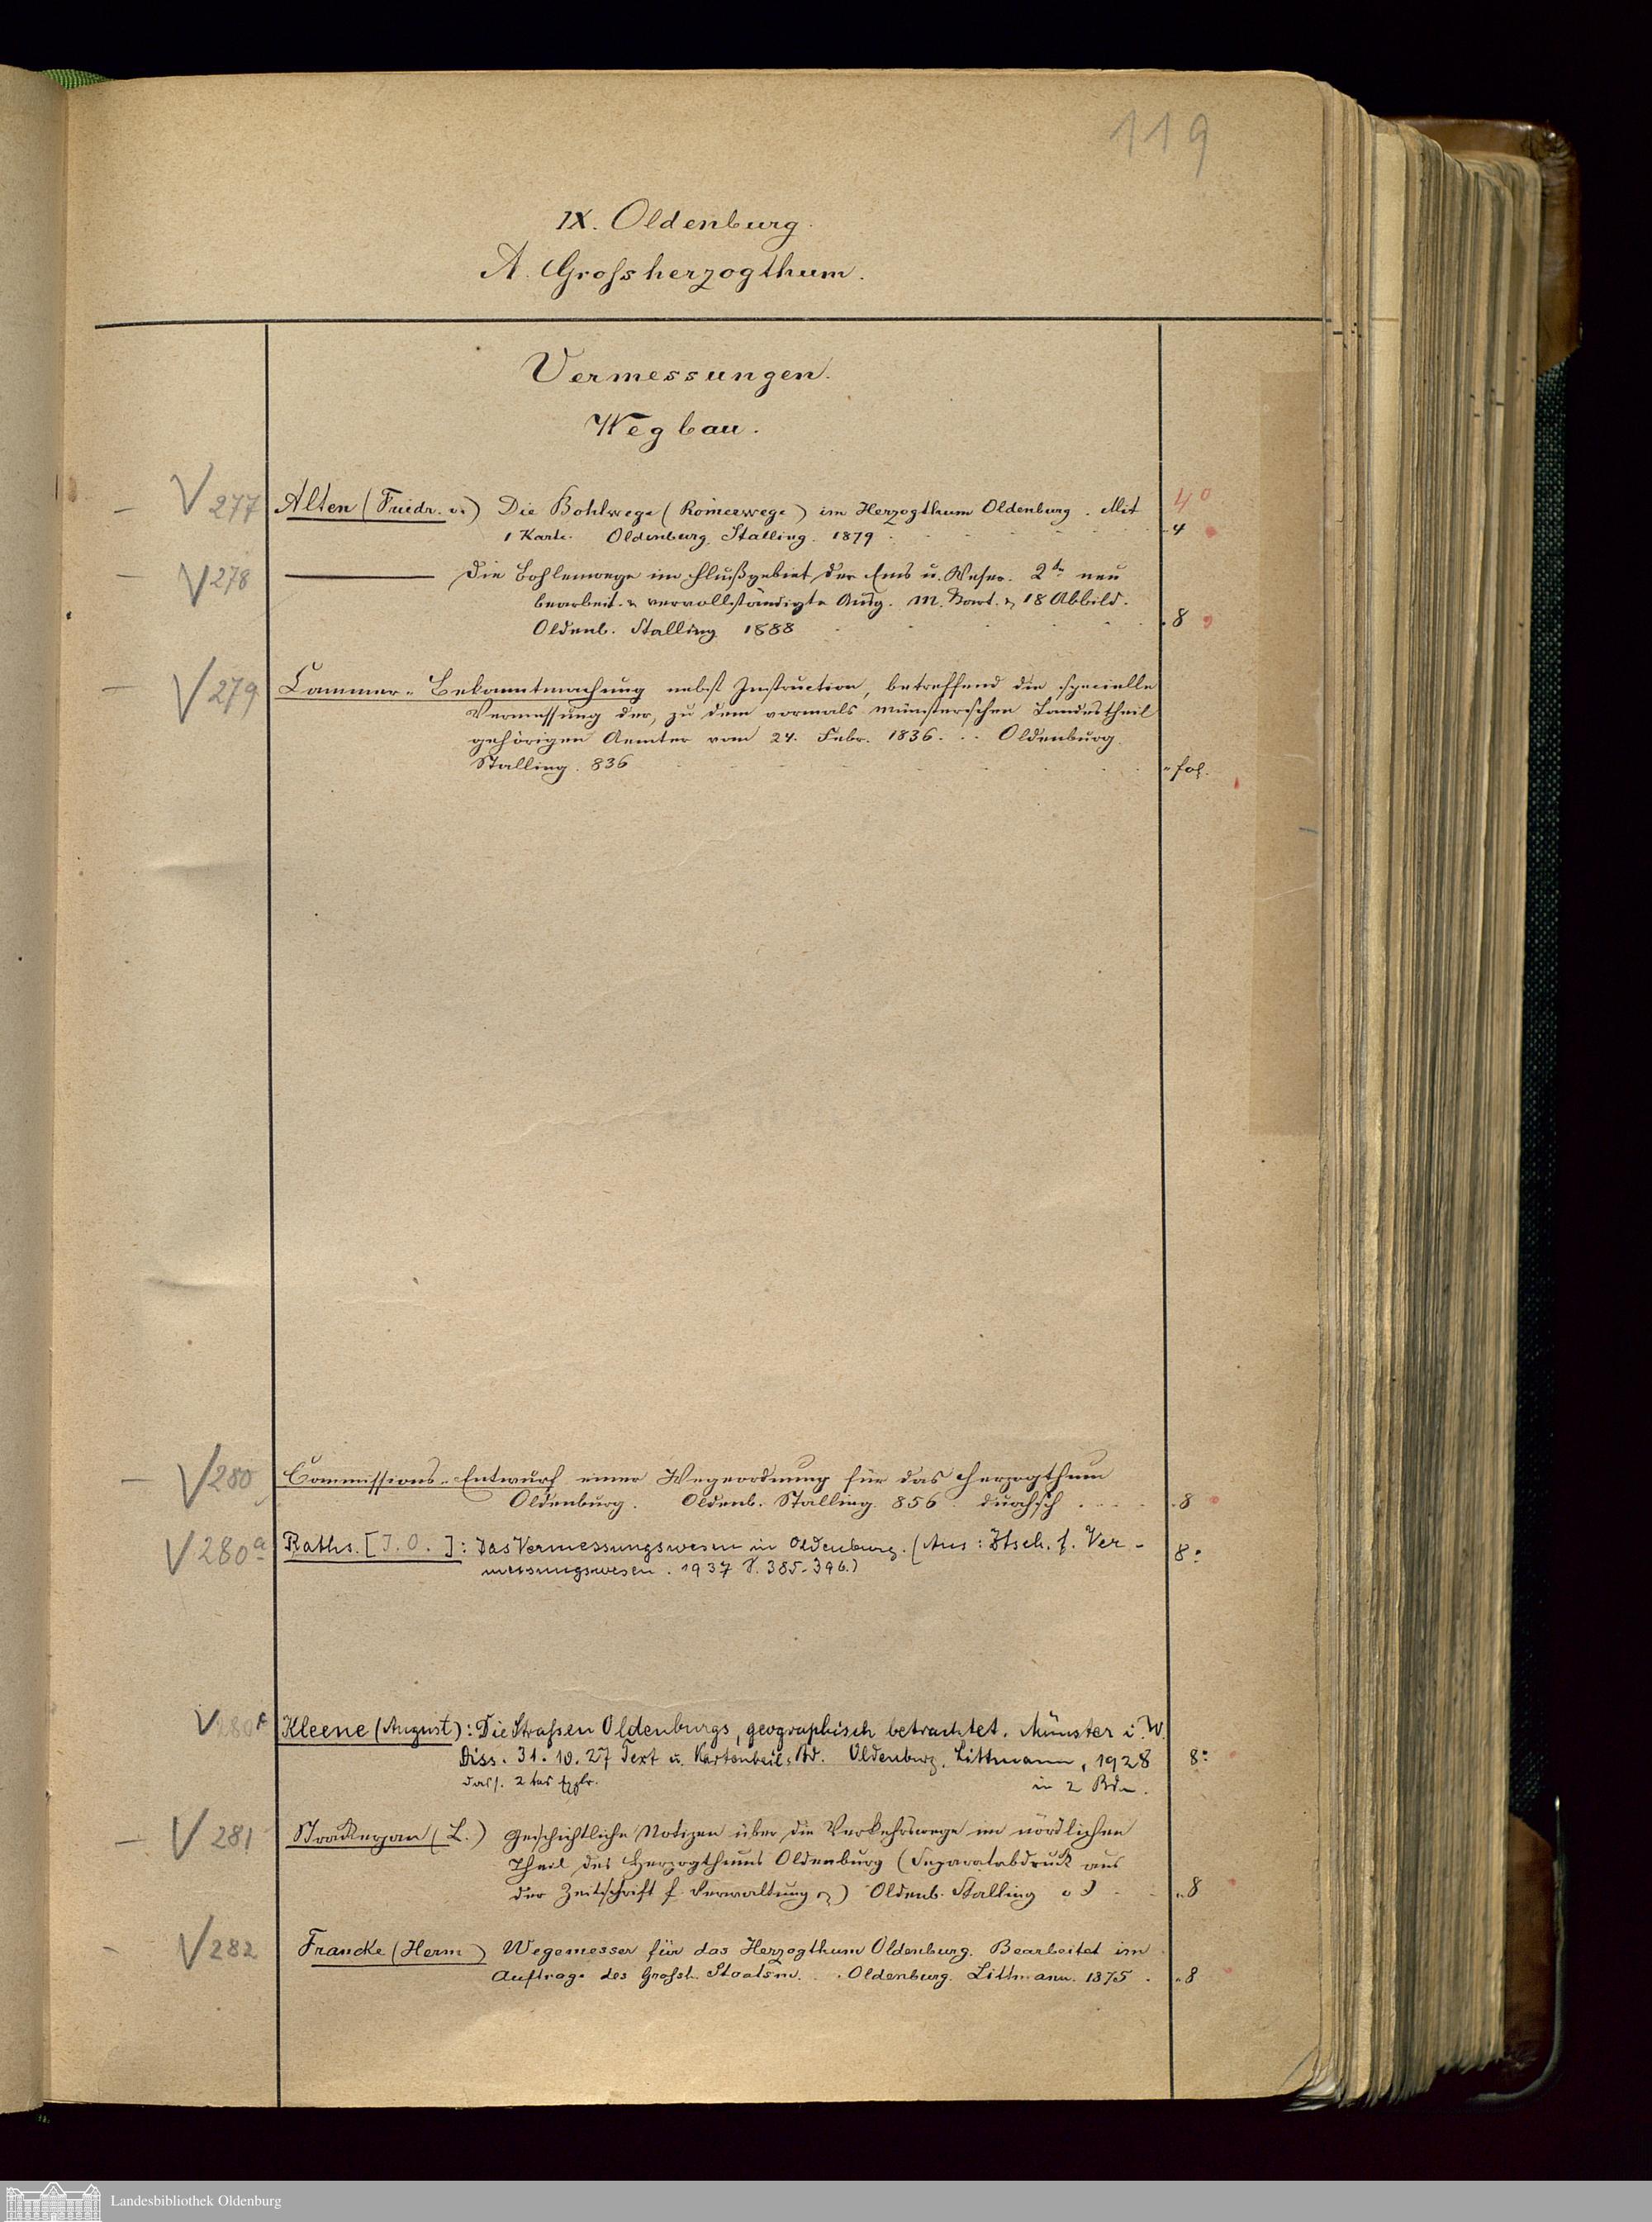 119
IX. Oldenburg.
A. Grossherzogthum.
Vermessungen.
Wegbau.
V 277 Alten (Friedr. v.) Die Bohlwege (Römerwege) im Herzogthum Oldenburg. Mit 4°
1 Karte. Oldenburg. Stalling. 1879 4
V 278 Die Bohlenwege im Flußgebiet der Ems u. Weser. 2te neu
bearbeit. u vervollständigte Ausg. M. Kart. u 18 Abbild.
Oldenb. Stalling 1888 8
V 279 Cammer-Bekanntmachung nebst Instruction, betreffend die specielle
Vermessung der, zu dem vormals münsterschen Landestheil
gehörigen Aemter vom 24. Febr. 1836. .. Oldenburg.
Stalling. 836 fol.
V 280 Commissions-Entwurf einer Wegeordnung für das Herzogthum
Oldenburg. Oldenb. Stalling. 856. durchsch. 8
V 280a Raths. [J. O.]: Das Vermessungswesen in Oldenburg. (Aus: Ztsch. f. Ver- 8°
messungswesen. 1937 S. 385-396.)
V 280b Kleene (August): Die Straßen Oldenburgs, geographisch betrachtet. Münster i. W.
Diss. 31.10.27 Text u. Kartenbeil. Bd. Oldenburg, Littmann, 1928 8°
dass. 2tes Explr. in 2 Bdn.
V 281 Strackerjan (L.) Geschichtliche Notizen über die Verkehrswege im nördlichen
Theil des Herzogthums Oldenburg (Separatabdruck aus
der Zeitschrift f. Verwaltung) Oldenb. Stalling o J 8
V 282 Francke (Herm) Wegemesser für das Herzogthum Oldenburg. Bearbeitet im
Auftrage des Grossh. Staatsm. .. Oldenburg. Littmann. 1875. 8
Landesbibliothek Oldenburg